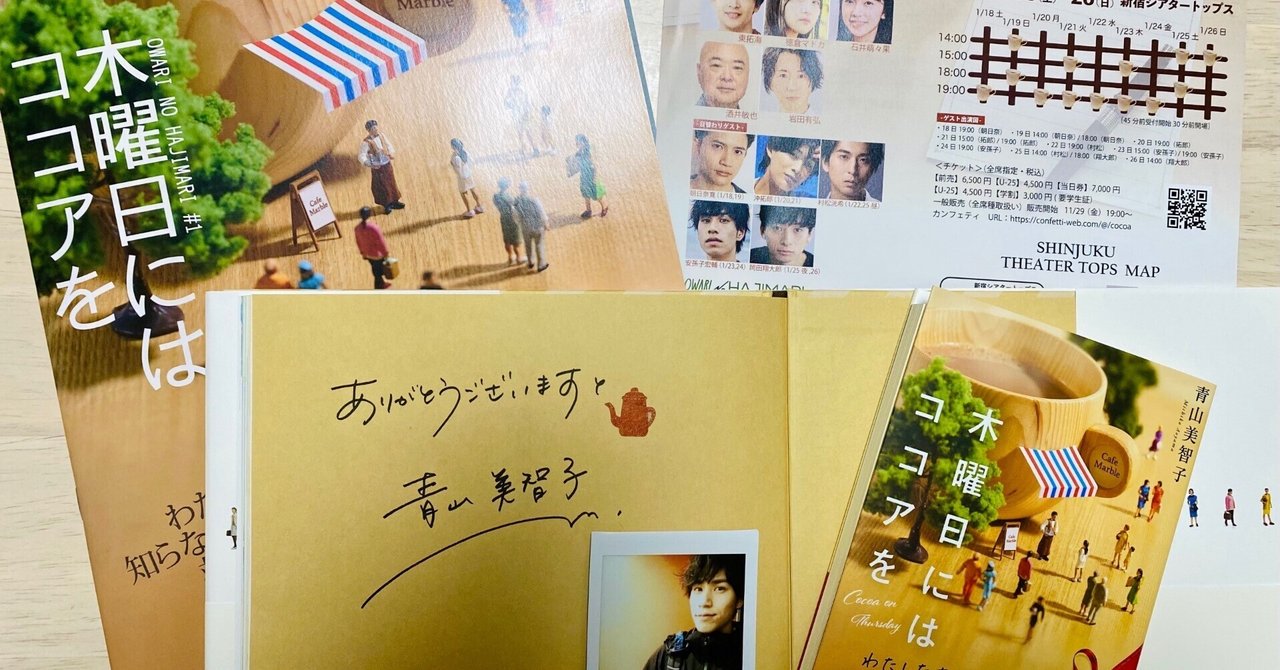 OWARI NO HAJIMARI #1
木曜日には
ココアを
Marble
Cafe
Marble
わた
知らな
東拓海
徳倉マドカ
石井萌々果
酒井敏也
岩田有弘
日替わりゲスト
朝日奈寛(1/18,19)
沖拓郎(1/20,21)
村松洸希(1/22,25昼)
安孫子宏輔(1/23,24)
岡田翔大郎(1/25夜,26)
(日) 新宿シアタートップス
1/18 土
1/19 日
1/20 月
1/21 火
1/22 水
1/23 木
1/24 金
1/25 土
1/26 日
14:00
15:00
18:00
19:00
(45分前受付開始 30分前開場)
-ゲスト出演回-
・18日 19:00 (朝日奈) ・19日 14:00 (朝日奈) / 18:00 (朝日奈) ・20日 19:00 (拓郎)
・21日 15:00 (拓郎) / 19:00 (拓郎) ・22日 19:00 (村松) ・23日 15:00 (安孫子) / 19:00 (安孫子)
・24日 19:00 (安孫子) ・25日 14:00 (村松) / 18:00 (翔大郎) ・26日 14:00 (翔大郎)
<チケット> (全席指定・税込)
【前売】6,500円【U-25】4,500円【当日券】7,000円
【U-25】4,500円【学割】3,000円(要学生証)
一般販売(全席種取扱い)販売開始 11/29(金)19:00〜
カンフェティ URL:https://confetti-web.com/@/cocoa
SHINJUKU
THEATER TOPS MAP
新宿シアタートップス
OWARI NO HAJIMARI
ありがとうございますと
青山美智子
青山美智子
Michiko Aoyama
木曜日には
ココアを
Cafe
Marble
Cafe
Marble
Cocoa on
Thursday
わたしたち